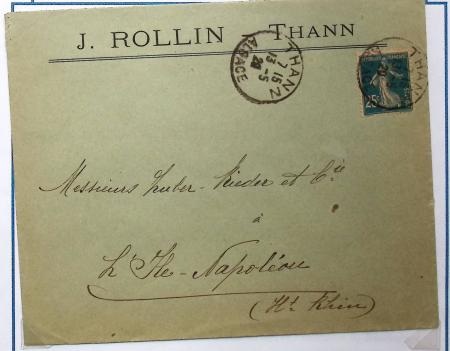 J. ROLLIN THANN
THANN
7 15
13 -5
20
ALSACE
25c
THANN
20
Messieurs Huber-Rieder et Cie
à
L'Ile-Napoléon
(Ht Rhin)